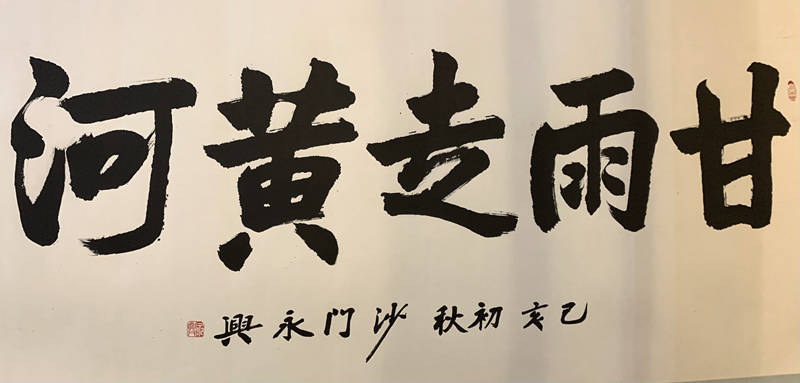 甘雨走黄河
己亥初秋沙門永興